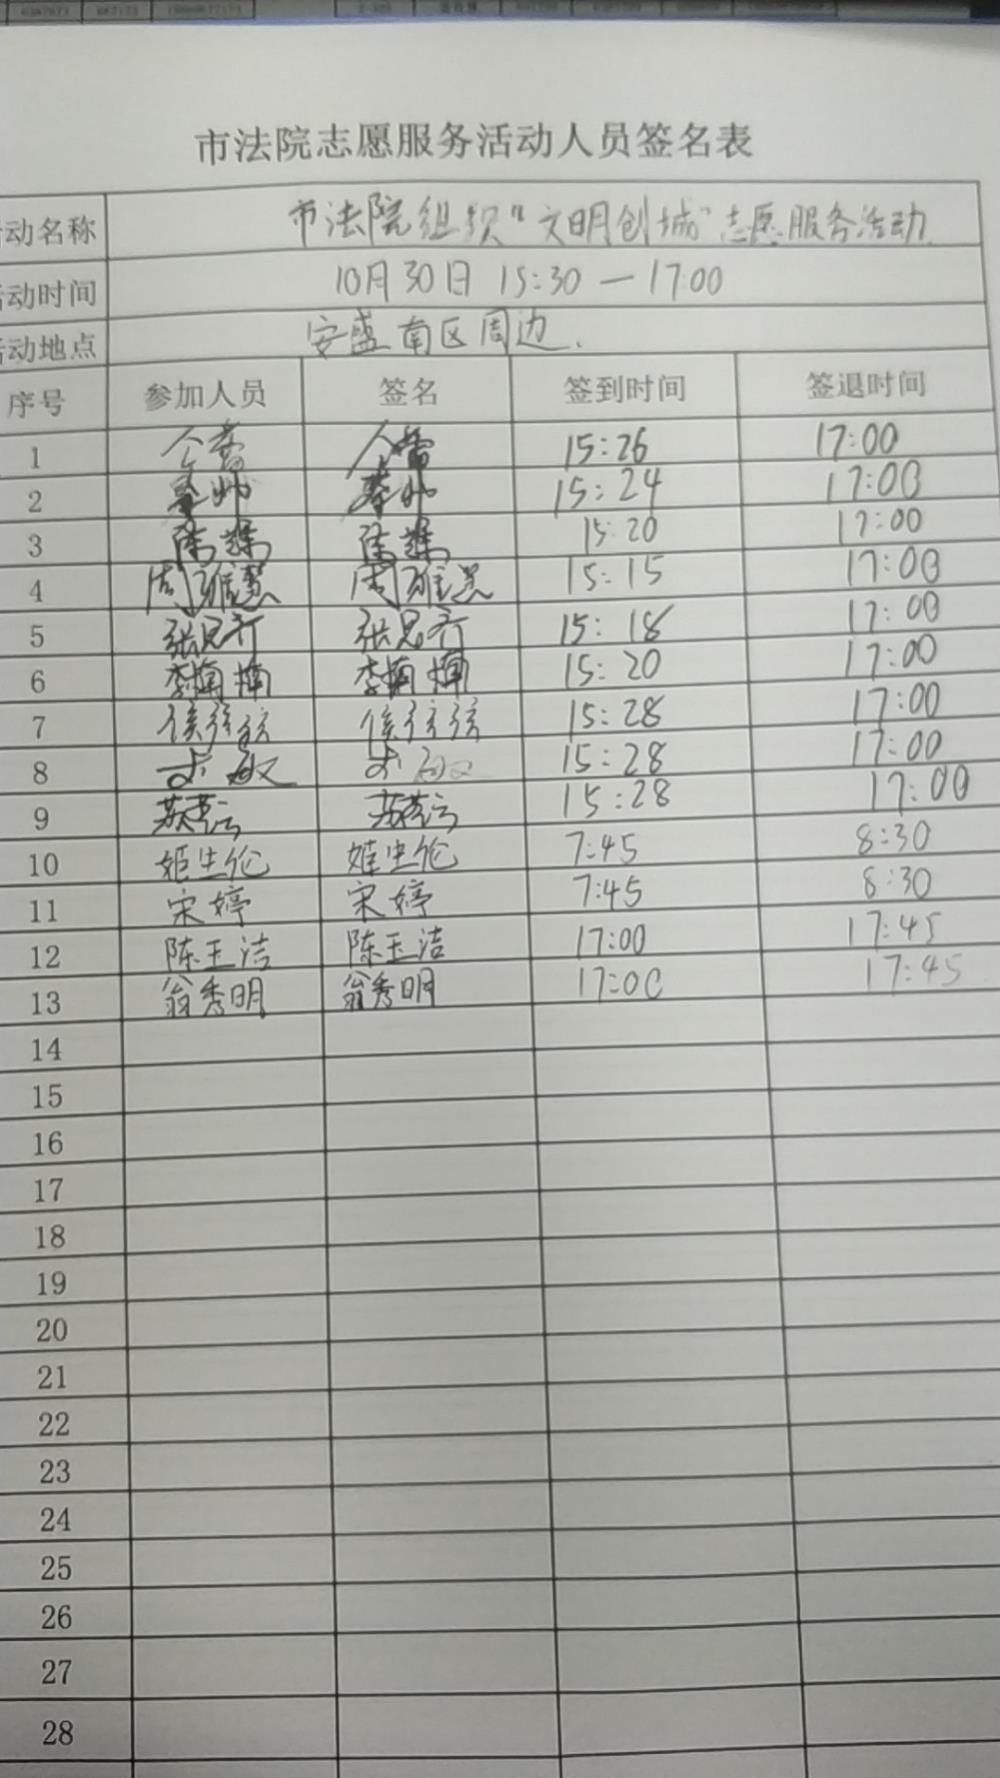 市法院志愿服务活动人员签名表
动名称 市法院组织“文明创城”志愿服务活动
动时间 10月30日 15:30 — 17:00
动地点 安盛南区周边.
序号 参加人员 签名 签到时间 签退时间
1 15:26 17:00
2 15:24 17:00
3 15:20 17:00
4 周雅慧 周雅慧 15:15 17:00
5 张思齐 张思齐 15:18 17:00
6 李楠楠 李楠楠 15:20 17:00
7 侯弦弦 侯弦弦 15:28 17:00
8 敏 敏 15:28 17:00
9 苏 苏 15:28 17:00
10 姬生伦 姬生伦 7:45 8:30
11 宋婷 宋婷 7:45 8:30
12 陈玉洁 陈玉洁 17:00 17:45
13 翁秀明 翁秀明 17:00 17:45
14
15
16
17
18
19
20
21
22
23
24
25
26
27
28